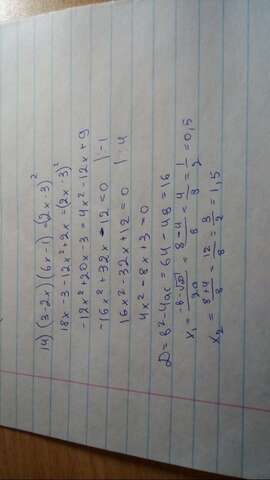 14) (3-2x)(6x-1) = (2x-3)²
18x-3-12x²+2x=(2x-3)²
-12x²+20x-3=4x²-12x+9
-16x²+32x-12=0 |:-1
16x²-32x+12=0 |:4
4x²-8x+3=0
D=b²-4ac=64-48=16
x₁=(-b-√D)/2a=(8-4)/8=4/8=1/2=0,5
x₂=(8+4)/8=12/8=3/2=1,5